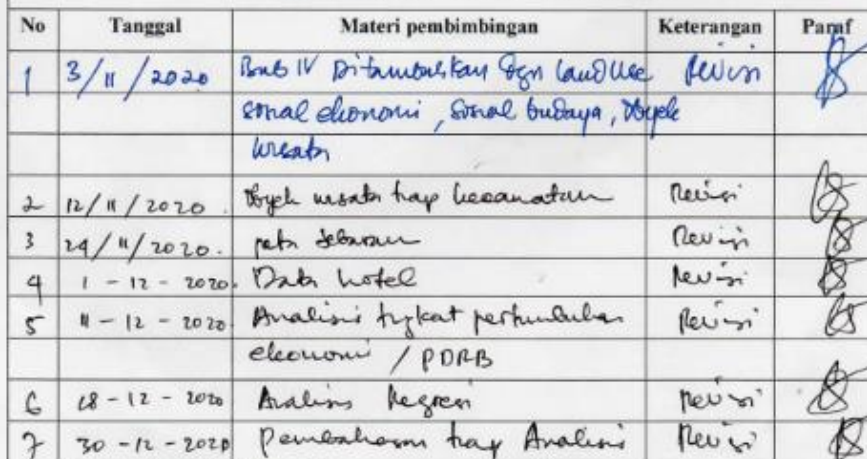 No Tanggal Materi pembimbingan Keterangan Paraf
1 3/11/2020 Bab IV Ditambahkan dgn landuse Revisi
sosial ekonomi, sosial budaya, Obyek
wisata
2 12/11/2020. Obyek wisata tiap kecamatan Revisi
3 24/11/2020. peta sebaran Revisi
4 1-12-2020. Data hotel Revisi
5 11-12-2020. Analisis tingkat pertumbuhan Revisi
ekonomi / PDRB
6 18-12-2020 Analisis Regresi Revisi
7 30-12-2020 Pembahasan tiap Analisis Revisi